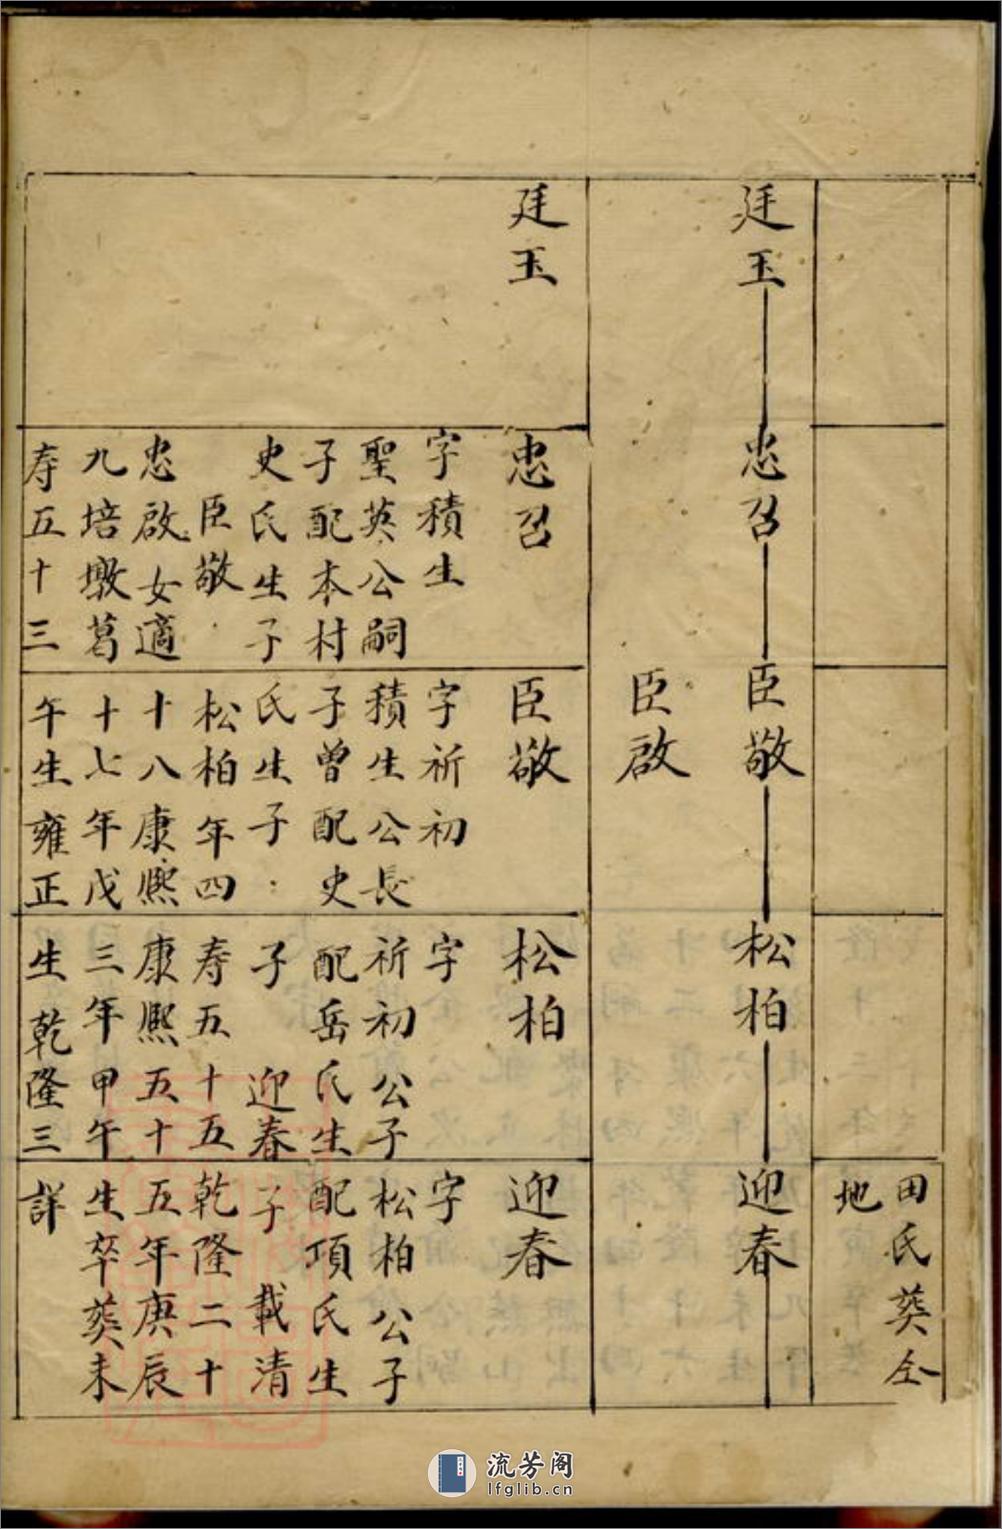 田氏葬仝
地
廷玉
忠召
臣敬
松柏
迎春
臣啟
廷玉
忠召
字積生
聖英公嗣
子配本村
史氏生子
臣敬
忠啟女適
九培墩葛
寿五十三
臣敬
字祈初
積生公長
子曾配史
氏生子
松柏年四
十八康熙
十七年戊
午生雍正
松柏
字
祈初公子
配岳氏生
子迎春
寿五十五
康熙五十
三年甲午
生乾隆三
迎春
字
松柏公子
配項氏生
子載清
乾隆二十
五年庚辰
生卒葬未
詳
流芳阁
lfglib.cn